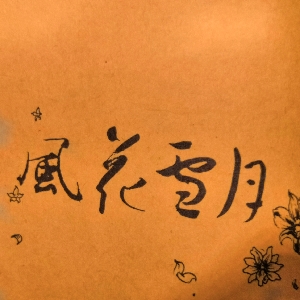 風花雪月